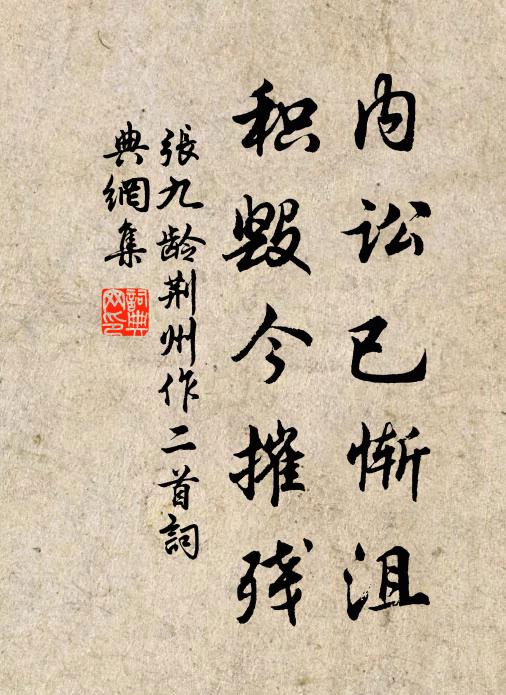 内讼已惭沮
积毁今摧残
張九龄荆州作二首詞
典網集
詞典網印